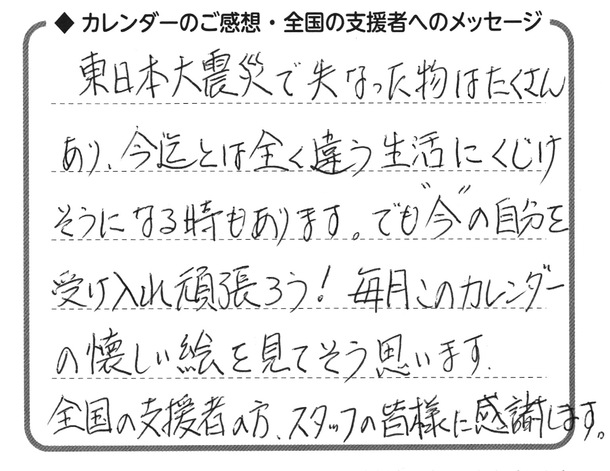 ◆ カレンダーのご感想・全国の支援者へのメッセージ
東日本大震災で失なった物はたくさん
あり、今迄とは全く違う生活にくじけ
そうになる時もあります。でも“今”の自分を
受け入れ頑張ろう！毎月このカレンダー
の懐しい絵を見てそう思います.
全国の支援者の方、スタッフの皆様に感謝します。